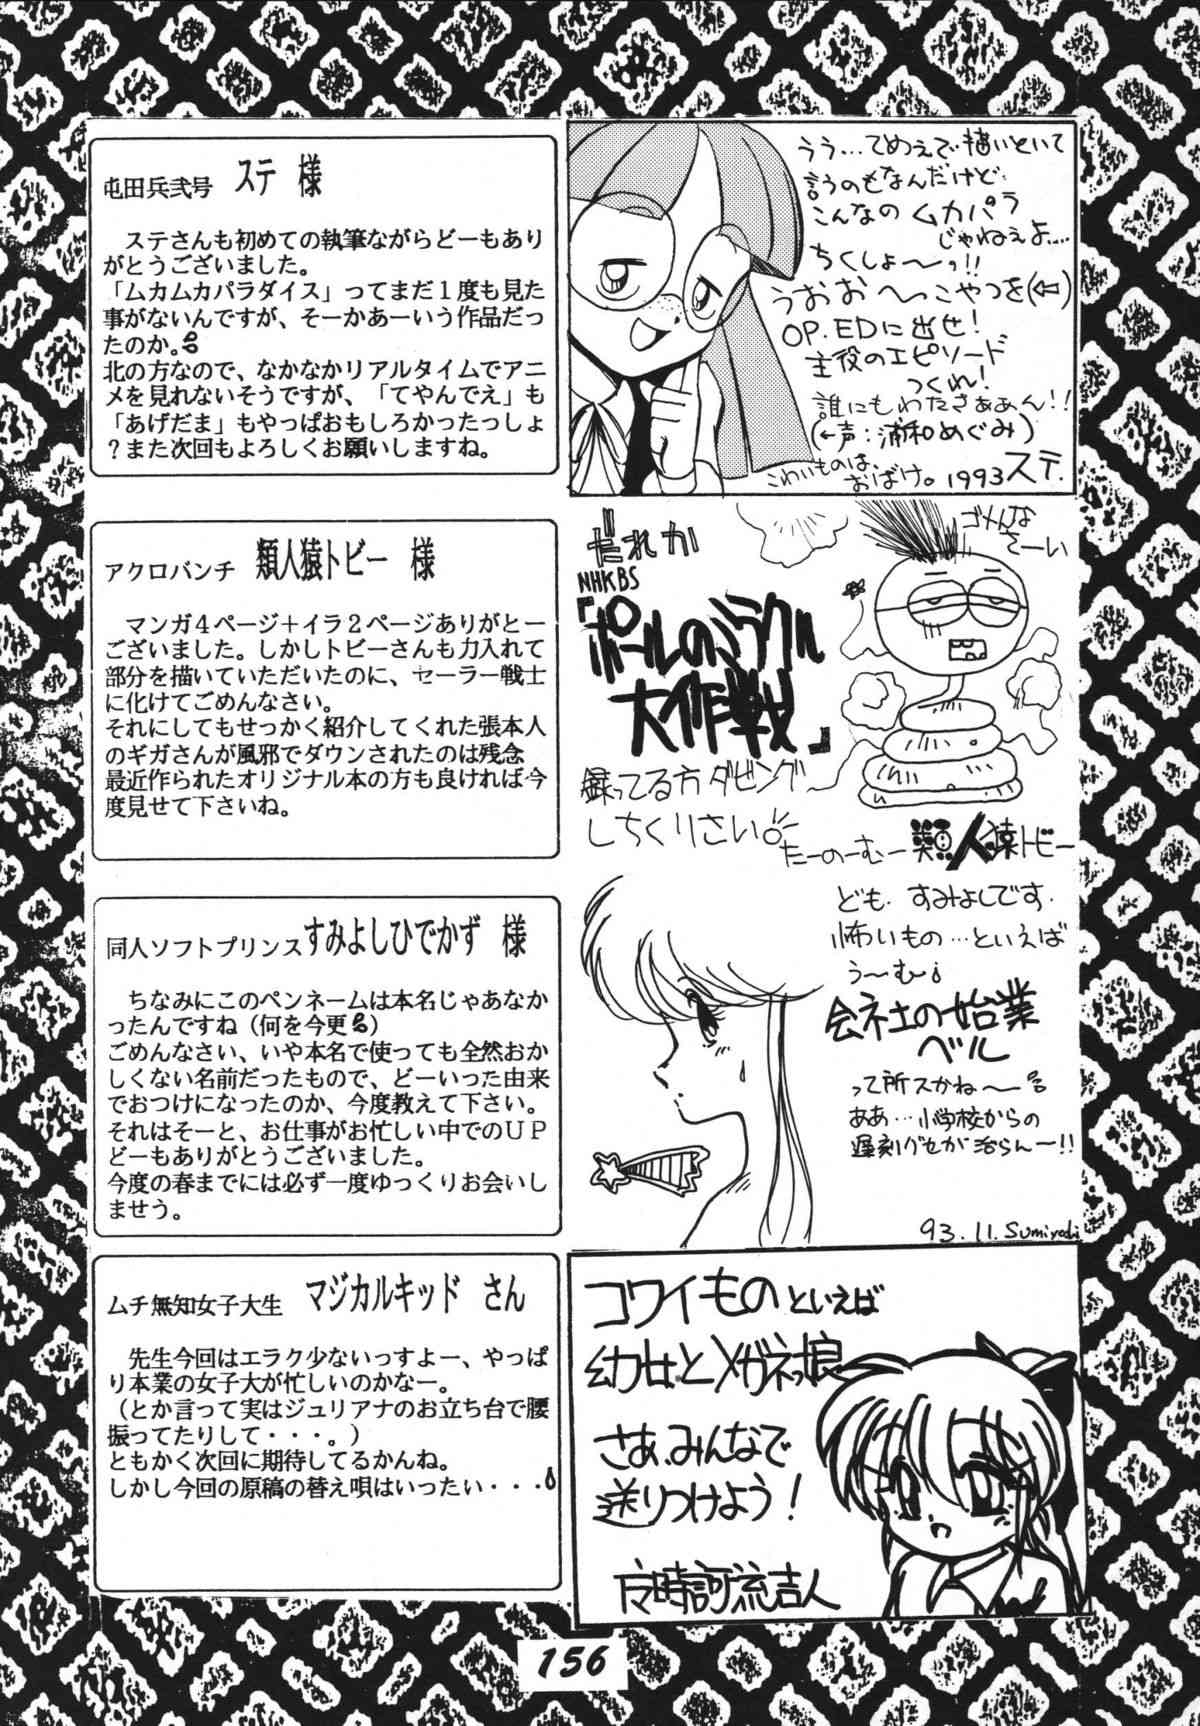 屯田兵弐号　ステ　様
ステさんも初めての執筆ながらどーもあり
がとうございました。
「ムカムカパラダイス」ってまだ１度も見た
事がないんですが、そーかあーいう作品だっ
たのか。
北の方なので、なかなかリアルタイムでアニ
メを見れないそうですが、「てやんでえ」も
「あげだま」もやっぱおもしろかったっしょ
？また次回もよろしくお願いしますね。
うう…てめえで描いといて
言うのもなんだけど
こんなの ムカパラ
じゃねえよ…..
ちくしょ〜っ!!
うおお〜っこやつを(⇦)
OP.EDに出せ!
主役のエピソード
つくれ!
誰にもわたさぁぁん!!
(←声:浦和めぐみ)
こわいものは、
おばけ。1993ステ.
アクロバンチ　類人猿トビー　様
マンガ４ページ＋イラ２ページありがとー
ございました。しかしトビーさんも力入れて
部分を描いていただいたのに、セーラー戦士
に化けてごめんなさい。
それにしてもせっかく紹介してくれた張本人
のギガさんが風邪でダウンされたのは残念
最近作られたオリジナル本の方も良ければ今
度見せて下さいね。
ゴメんな
さーい
だれか
NHKBS
『ポールのミラクル
大作戦』
録ってる方ダビング
しちくりさい
たーのーむー 類人猿トビー
同人ソフトプリンス すみよしひでかず　様
ちなみにこのペンネームは本名じゃあなか
ったんですね（何を今更）
ごめんなさい、いや本名で使っても全然おか
しくない名前だったもので、どーいった由来
でおつけになったのか、今度教えて下さい。
それはそーと、お仕事がお忙しい中でのＵＰ
どーもありがとうございました。
今度の春までには必ず一度ゆっくりお会いし
ませう。
ども、すみよしです.
怖いもの…といえば
う〜む
会社の始業
ベル
って所スかね〜
ああ…小学校からの
遅刻グセが治らん〜!!
93.11.Sumiyoshi
ムチ無知女子大生　マジカルキッド　さん
先生今回はエラク少ないっすよー、やっぱ
り本業の女子大が忙しいのかなー。
（とか言って実はジュリアナのお立ち台で腰
振ってたりして・・・。）
ともかく次回に期待してるかんね。
しかし今回の原稿の替え唄はいったい・・・
コワイものといえば
幼女とメガネっ娘
さあ、みんなで
送りつけよう!
156